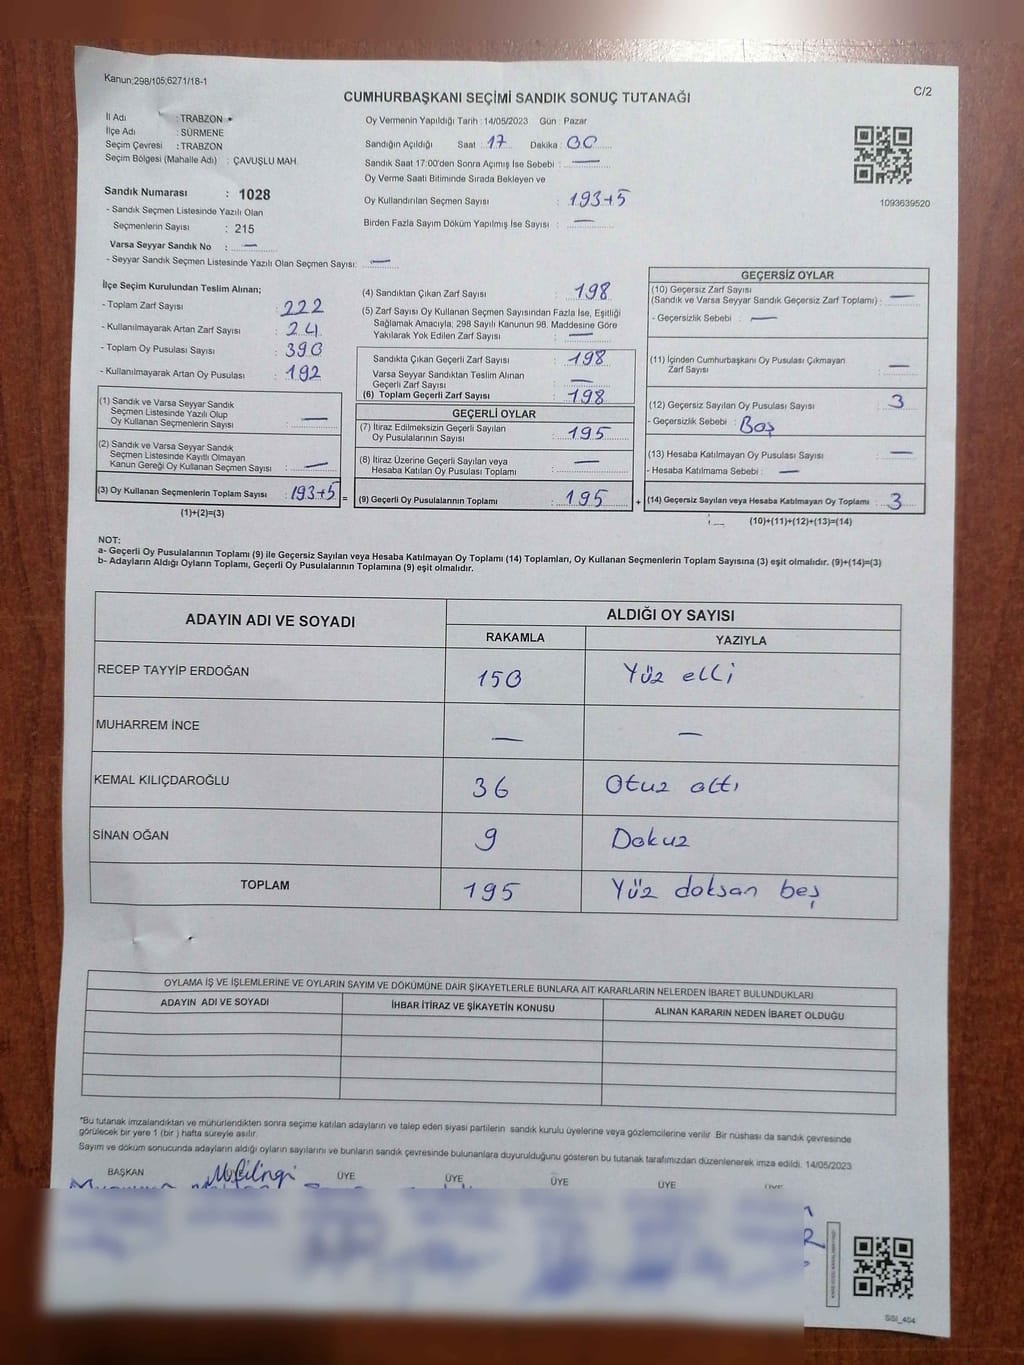 Kanun;298/105;6271/18-1
C/2
CUMHURBAŞKANI SEÇİMİ SANDIK SONUÇ TUTANAĞI
İl Adı : TRABZON
İlçe Adı : SÜRMENE
Seçim Çevresi : TRABZON
Seçim Bölgesi (Mahalle Adı) : ÇAVUŞLU MAH.
Sandık Numarası : 1028
- Sandık Seçmen Listesinde Yazılı Olan
Seçmenlerin Sayısı : 215
Varsa Seyyar Sandık No : —
- Seyyar Sandık Seçmen Listesinde Yazılı Olan Seçmen Sayısı: —
Oy Vermenin Yapıldığı Tarih : 14/05/2023 Gün : Pazar
Sandığın Açıldığı Saat : 17 Dakika : 00
Sandık Saat 17:00'den Sonra Açımış İse Sebebi : —
Oy Verme Saati Bitiminde Sırada Bekleyen ve
Oy Kullandırılan Seçmen Sayısı : 193+5
Birden Fazla Sayım Döküm Yapılmış İse Sayısı : —
1093639520
İlçe Seçim Kurulundan Teslim Alınan;
- Toplam Zarf Sayısı : 222
- Kullanılmayarak Artan Zarf Sayısı : 24
- Toplam Oy Pusulası Sayısı : 390
- Kullanılmayarak Artan Oy Pusulası : 192
(1) Sandık ve Varsa Seyyar Sandık
Seçmen Listesinde Yazılı Olup
Oy Kullanan Seçmenlerin Sayısı : —
(2) Sandık ve Varsa Seyyar Sandık
Seçmen Listesinde Kayıtlı Olmayan
Kanun Gereği Oy Kullanan Seçmen Sayısı : —
(3) Oy Kullanan Seçmenlerin Toplam Sayısı : 193+5 =
(1)+(2)=(3)
(4) Sandıktan Çıkan Zarf Sayısı : 198
(5) Zarf Sayısı Oy Kullanan Seçmen Sayısından Fazla İse, Eşitliği
Sağlamak Amacıyla, 298 Sayılı Kanunun 98. Maddesine Göre
Yakılarak Yok Edilen Zarf Sayısı : —
Sandıkta Çıkan Geçerli Zarf Sayısı : 198
Varsa Seyyar Sandıktan Teslim Alınan
Geçerli Zarf Sayısı : —
(6) Toplam Geçerli Zarf Sayısı : 198
GEÇERLİ OYLAR
(7) İtiraz Edilmeksizin Geçerli Sayılan
Oy Pusulalarının Sayısı : 195
(8) İtiraz Üzerine Geçerli Sayılan veya
Hesaba Katılan Oy Pusulası Toplamı : —
(9) Geçerli Oy Pusulalarının Toplamı : 195 +
GEÇERSİZ OYLAR
(10) Geçersiz Zarf Sayısı
(Sandık ve Varsa Seyyar Sandık Geçersiz Zarf Toplamı) : —
- Geçersizlik Sebebi : —
(11) İçinden Cumhurbaşkanı Oy Pusulası Çıkmayan
Zarf Sayısı : —
(12) Geçersiz Sayılan Oy Pusulası Sayısı : 3
- Geçersizlik Sebebi : Boş
(13) Hesaba Katılmayan Oy Pusulası Sayısı : —
- Hesaba Katılmama Sebebi : —
(14) Geçersiz Sayılan veya Hesaba Katılmayan Oy Toplamı : 3
(10)+(11)+(12)+(13)=(14)
NOT:
a- Geçerli Oy Pusulalarının Toplamı (9) ile Geçersiz Sayılan veya Hesaba Katılmayan Oy Toplamı (14) Toplamları, Oy Kullanan Seçmenlerin Toplam Sayısına (3) eşit olmalıdır. (9)+(14)=(3)
b- Adayların Aldığı Oyların Toplamı, Geçerli Oy Pusulalarının Toplamına (9) eşit olmalıdır.
ADAYIN ADI VE SOYADI
ALDIĞI OY SAYISI
RAKAMLA YAZIYLA
RECEP TAYYİP ERDOĞAN 150 Yüz elli
MUHARREM İNCE — —
KEMAL KILIÇDAROĞLU 36 Otuz altı
SİNAN OĞAN 9 Dokuz
TOPLAM 195 Yüz doksan beş
OYLAMA İŞ VE İŞLEMLERİNE VE OYLARIN SAYIM VE DÖKÜMÜNE DAİR ŞİKAYETLERLE BUNLARA AİT KARARLARIN NELERDEN İBARET BULUNDUKLARI
ADAYIN ADI VE SOYADI İHBAR İTİRAZ VE ŞİKAYETİN KONUSU ALINAN KARARIN NEDEN İBARET OLDUĞU
*Bu tutanak imzalandıktan ve mühürlendikten sonra seçime katılan adayların ve talep eden siyasi partilerin sandık kurulu üyelerine veya gözlemcilerine verilir. Bir nüshası da sandık çevresinde
görülecek bir yere 1 (bir) hafta süreyle asılır.
Sayım ve döküm sonucunda adayların aldığı oyların sayılarını ve bunların sandık çevresinde bulunanlara duyurulduğunu gösteren bu tutanak tarafımızdan düzenlenerek imza edildi. 14/05/2023
BAŞKAN ÜYE ÜYE ÜYE ÜYE
SSİ_404